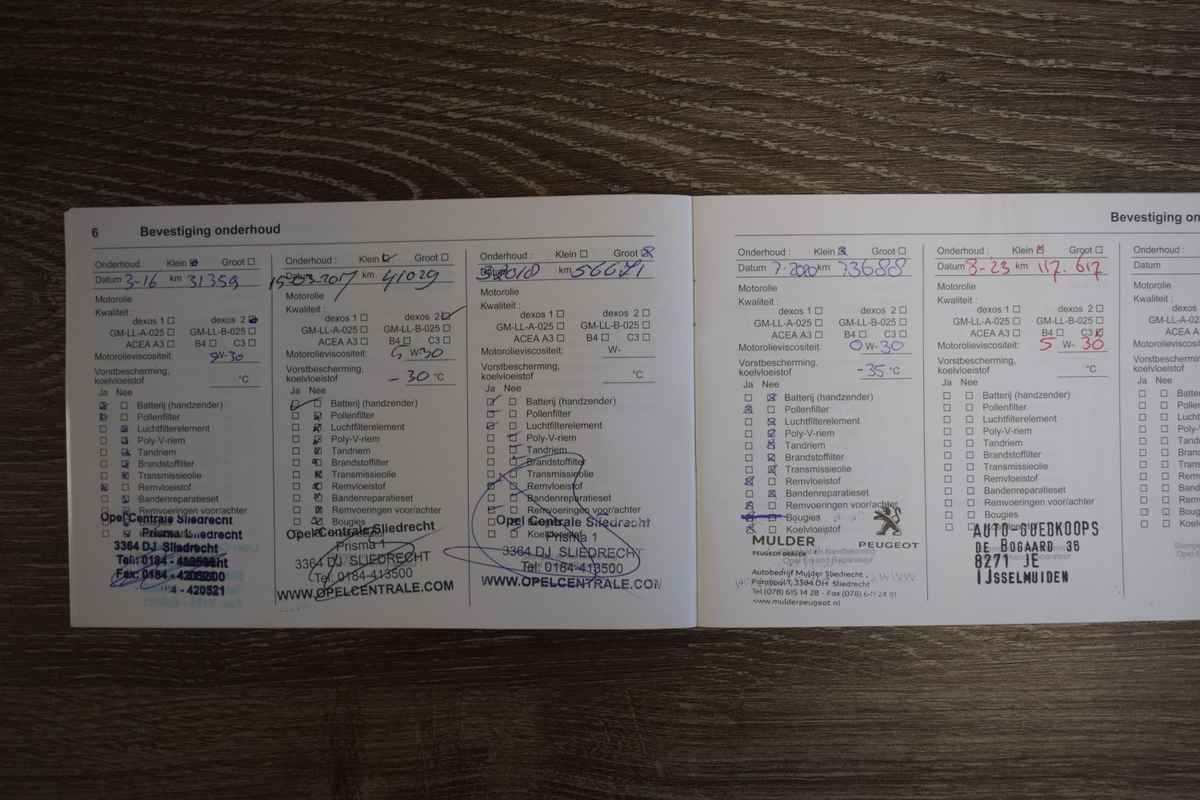 6 Bevestiging onderhoud
Onderhoud : Klein Groot
Datum 3-16 km 31359
Motorolie
Kwaliteit :
dexos 1 dexos 2
GM-LL-A-025 GM-LL-B-025
ACEA A3 B4 C3
Motorolieviscositeit: 5W-30
Vorstbescherming,
koelvloeistof °C
Ja Nee
Batterij (handzender)
Pollenfilter
Luchtfilterelement
Poly-V-riem
Tandriem
Brandstoffilter
Transmissieolie
Remvloeistof
Bandenreparatieset
Remvoeringen voor/achter
Opel Centrale Sliedrecht
Prisma 1
3364 DJ Sliedrecht
Tel: 0184 -
Fax: 0184 -
- 420521
Onderhoud : Klein Groot
Datum 15-03-2017 km 41029
Motorolie
Kwaliteit :
dexos 1 dexos 2
GM-LL-A-025 GM-LL-B-025
ACEA A3 B4 C3
Motorolieviscositeit: 5 W-30
Vorstbescherming,
koelvloeistof - 30 °C
Ja Nee
Batterij (handzender)
Pollenfilter
Luchtfilterelement
Poly-V-riem
Tandriem
Brandstoffilter
Transmissieolie
Remvloeistof
Bandenreparatieset
Remvoeringen voor/achter
Bougies
Opel Centrale Sliedrecht
Prisma 1
3364 DJ SLIEDRECHT
Tel. 0184-413500
WWW.OPELCENTRALE.COM
Onderhoud : Klein Groot
km 56671
Motorolie
Kwaliteit :
dexos 1 dexos 2
GM-LL-A-025 GM-LL-B-025
ACEA A3 B4 C3
Motorolieviscositeit: W-
Vorstbescherming,
koelvloeistof °C
Ja Nee
Batterij (handzender)
Pollenfilter
Luchtfilterelement
Poly-V-riem
Tandriem
Brandstoffilter
Transmissieolie
Remvloeistof
Bandenreparatieset
Remvoeringen voor/achter
Opel Centrale Sliedrecht
Prisma 1
3364 DJ SLIEDRECHT
Tel: 0184-413500
WWW.OPELCENTRALE.COM
Bevestiging on
Onderhoud : Klein Groot
Datum 7-2020 km 73688
Motorolie
Kwaliteit :
dexos 1 dexos 2
GM-LL-A-025 GM-LL-B-025
ACEA A3 B4 C3
Motorolieviscositeit: 0 W-30
Vorstbescherming,
koelvloeistof -35 °C
Ja Nee
Batterij (handzender)
Pollenfilter
Luchtfilterelement
Poly-V-riem
Tandriem
Brandstoffilter
Transmissieolie
Remvloeistof
Bandenreparatieset
Remvoeringen voor/achter
Bougies
Koelvloeistof
MULDER PEUGEOT
Autobedrijf Mulder Sliedrecht
3364 DH Sliedrecht
Tel (078) 615 14 28 - Fax (078)
www.mulderpeugeot.nl
Onderhoud : Klein Groot
Datum 3-23 km 117.617
Motorolie
Kwaliteit :
dexos 1 dexos 2
GM-LL-A-025 GM-LL-B-025
ACEA A3 B4 C3
Motorolieviscositeit: 5 W- 30
Vorstbescherming,
koelvloeistof °C
Ja Nee
Batterij (handzender)
Pollenfilter
Luchtfilterelement
Poly-V-riem
Tandriem
Brandstoffilter
Transmissieolie
Remvloeistof
Bandenreparatieset
Remvoeringen voor/achter
Bougies
Koelvloeistof
AUTO-GOEDKOOPS
DE BOGAARD 36
8271 JE
IJSSELMUIDEN
Onderhoud :
Datum
Motorolie
Kwaliteit :
GM-LL-
Motorolieviscosite
Vorstbeschermin
koelvloeistof
Ja Nee
Batterij
Pollenf
Luchtfi
Poly-V
Tandr
Brand
Trans
Remv
Band
Rem
Boug
Koel